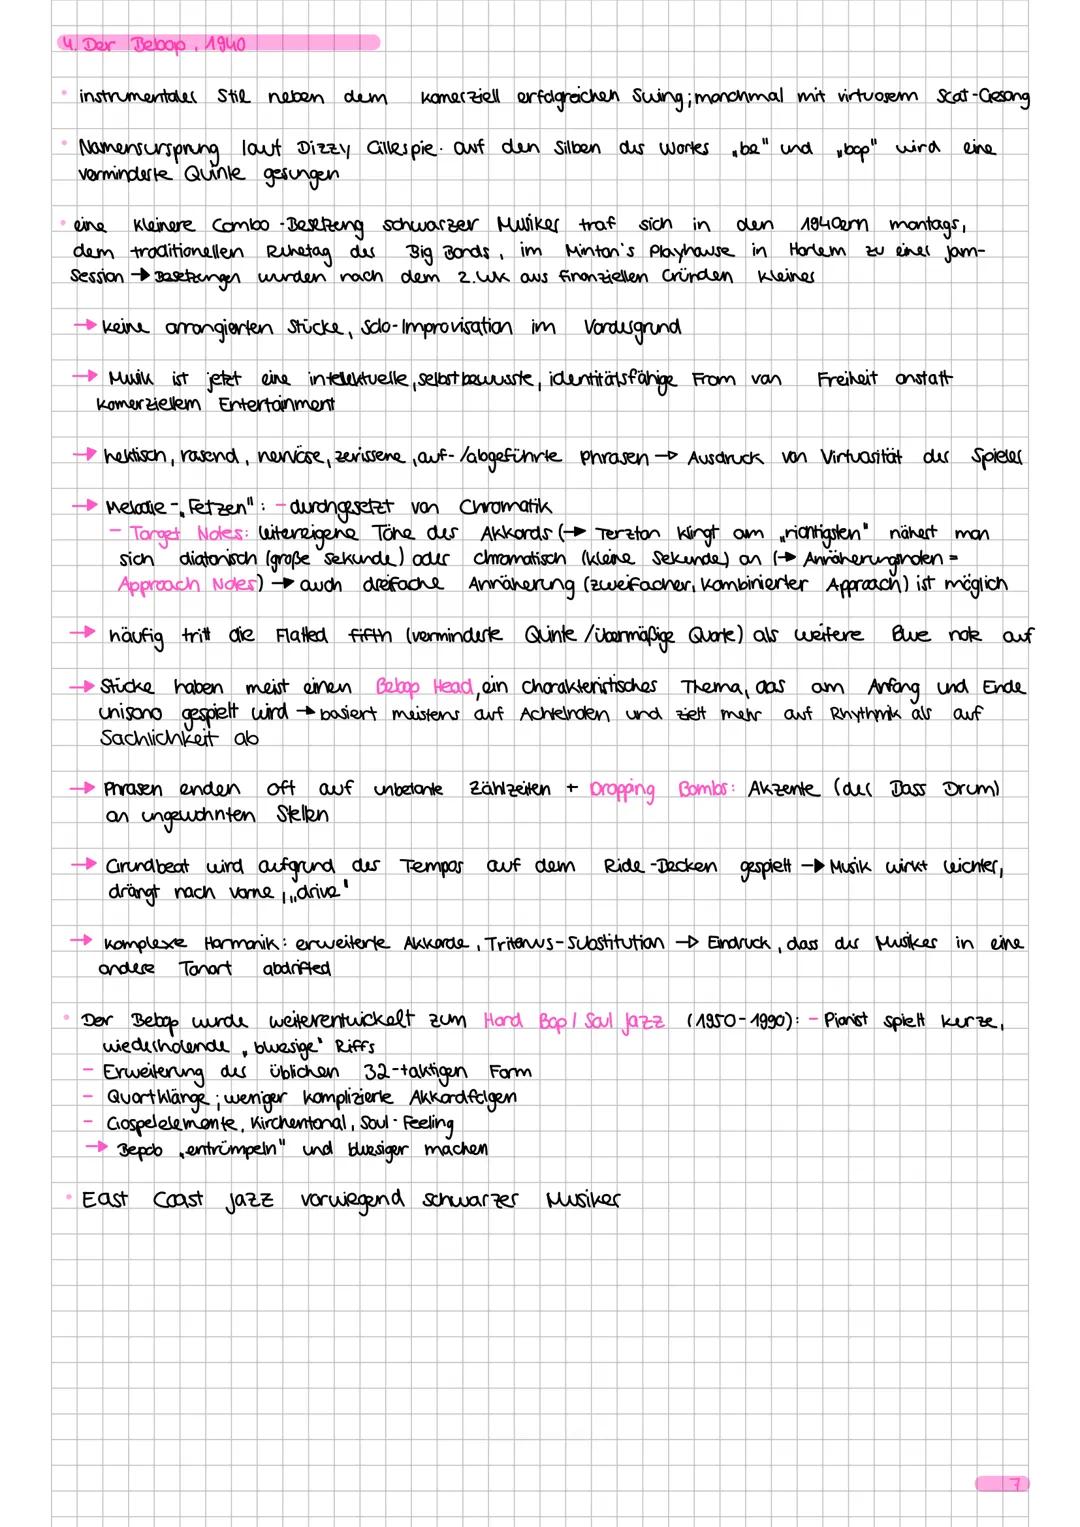 4. Der Bebop, 1940
• instrumentaler Stil neben dem komerziell erfolgreichen Swing; manchmal mit virtuosem Scat-Gesang
• Namensursprung laut Dizzy Gillespie: auf den Silben des Wortes „be" und „bop" wird eine
verminderte Quinte gesungen
• eine kleinere Combo-Besetzung schwarzer Musiker traf sich in den 1940ern montags,
dem traditionellen Ruhetag der Big Bands, im Minton's Playhouse in Harlem zu einer Jam-
Session → Besetzungen wurden nach dem 2.WK aus finanziellen Gründen kleiner
→ keine arrangierten Stücke, Solo-Improvisation im Vordergrund
→ Musik ist jetzt eine intelektuelle, selbstbewusste, identitätsfähige From von Freiheit anstatt
komerziellem Entertainment
→ hektisch, rasend, nervöse, zerissene, auf-/abgeführte Phrasen → Ausdruck von Virtuosität der Spieler
→ Melodie-„Fetzen": - durchgesetzt von Chromatik
- Target Notes: leitereigene Töne des Akkords (→ Terzton klingt am „richtigsten" nähert man
sich diatonisch (große Sekunde) oder chromatisch (kleine Sekunde) an (→ Annäherungnoten =
Approach Notes) → auch dreifache Annäherung (zweifacher, kombinierter Approach) ist möglich
→ häufig tritt die Flatted fifth (verminderte Quinte/übermäßige Quarte) als weitere Blue note auf
→ Stücke haben meist einen Bebop Head, ein charakteristisches Thema, das am Anfang und Ende
unisono gespielt wird → basiert meistens auf Achtelnoten und zielt mehr auf Rhythmik als auf
Sachlichkeit ab
→ Phrasen enden oft auf unbetonte Zählzeiten + Dropping Bombs: Akzente (der Bass Drum)
an ungewohnten Stellen
→ Grundbeat wird aufgrund des Tempos auf dem Ride-Becken gespielt → Musik wirkt leichter,
drängt nach vorne, „drive"
→ komplexe Harmonik: erweiterte Akkorde, Tritonus-Substitution → Eindruck, dass der Musiker in eine
andere Tonart abdrifted
• Der Bebop wurde weiterentwickelt zum Hard Bop / Soul Jazz (1950-1990): - Pianist spielt kurze,
wiederholende „bluesige" Riffs
- Erweiterung der üblichen 32-taktigen Form
- Quartklänge; weniger komplizierte Akkordfolgen
- Gospelelemente, Kirchentonal, Soul-Feeling
→ Bepob „entrümpeln" und bluesiger machen
• East Coast Jazz vorwiegend schwarzer Musiker
7